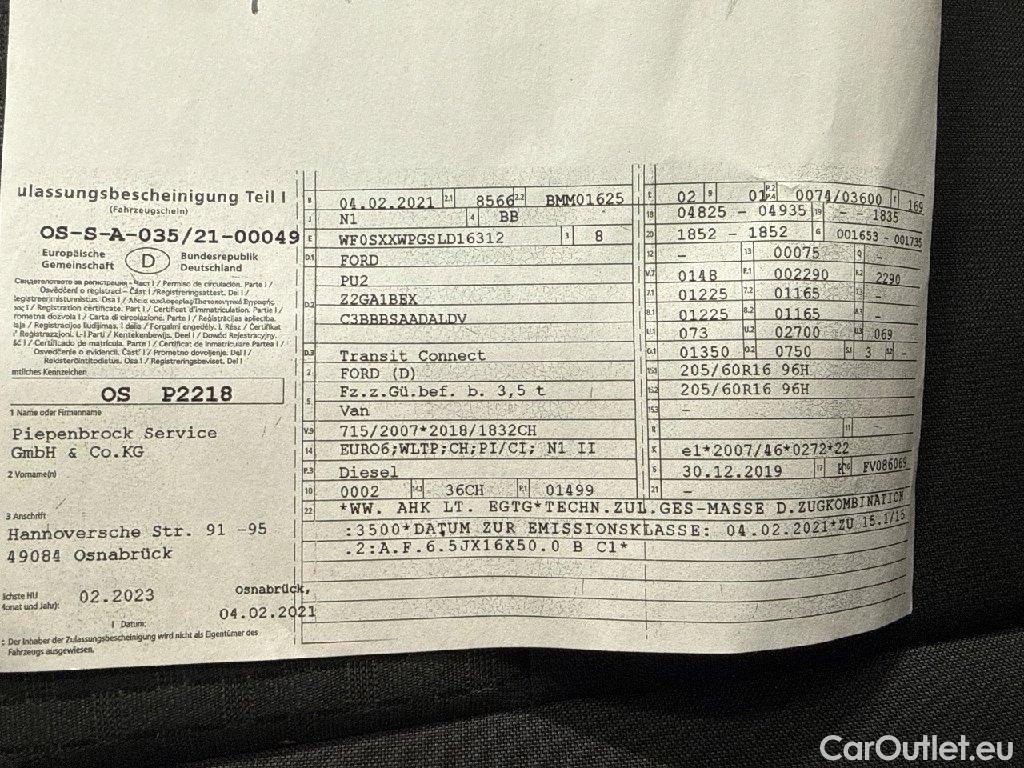 ulassungsbescheinigung Teil I
(Fahrzeugschein)
OS-S-A-035/21-00049
Europäische Gemeinschaft
D
Bundesrepublik Deutschland
OS P2218
1 Name oder Firmenname
Piepenbrock Service
GmbH & Co.KG
2 Vorname(n)
3 Anschrift
Hannoversche Str. 91 -95
49084 Osnabrück
02.2023
Osnabrück,
04.02.2021
Datum:
Der Inhaber der Zulassungsbescheinigung wird nicht als Eigentümer des
Fahrzeugs ausgewiesen.
B 04.02.2021 2.1 8566 2.2 BMM01625
J N1 4 BB
E WF0SXXWPGSLD16312 3 8
D.1 FORD
PU2
D.2 Z2GA1BEX
C3BBBSAADALDV
D.3 Transit Connect
2 FORD (D)
5 Fz.z.Gü.bef. b. 3,5 t
Van
V.9 715/2007*2018/1832CH
14 EURO6;WLTP;CH;PI/CI; N1 II
P.3 Diesel
10 0002 14.1 36CH P.1 01499
22 *WW. AHK LT. EGTG*TECHN.ZUL.GES-MASSE D.ZUGKOMBINATION
:3500*DATUM ZUR EMISSIONSKLASSE: 04.02.2021*ZU 15.1/15
.2:A.F.6.5JX16X50.0 B C1*
L 02 9 01 P.2 P.4 0074/03600 T 169
18 04825 - 04935 19 - - 1835
20 1852 - 1852 G 001653 - 001735
12 - 13 00075 Q -
V.7 0148 F.1 002290 F.2 2290
7.1 01225 7.2 01165 7.3 -
8.1 01225 8.2 01165 8.3 -
U.1 073 U.2 02700 U.3 069
O.1 01350 O.2 0750 S.1 3 S.2 -
15.1 205/60R16 96H
15.2 205/60R16 96H
15.3 -
R 11
K e1*2007/46*0272*22
6 30.12.2019 17 K 16 FV086065
21 -
CarOutlet.eu